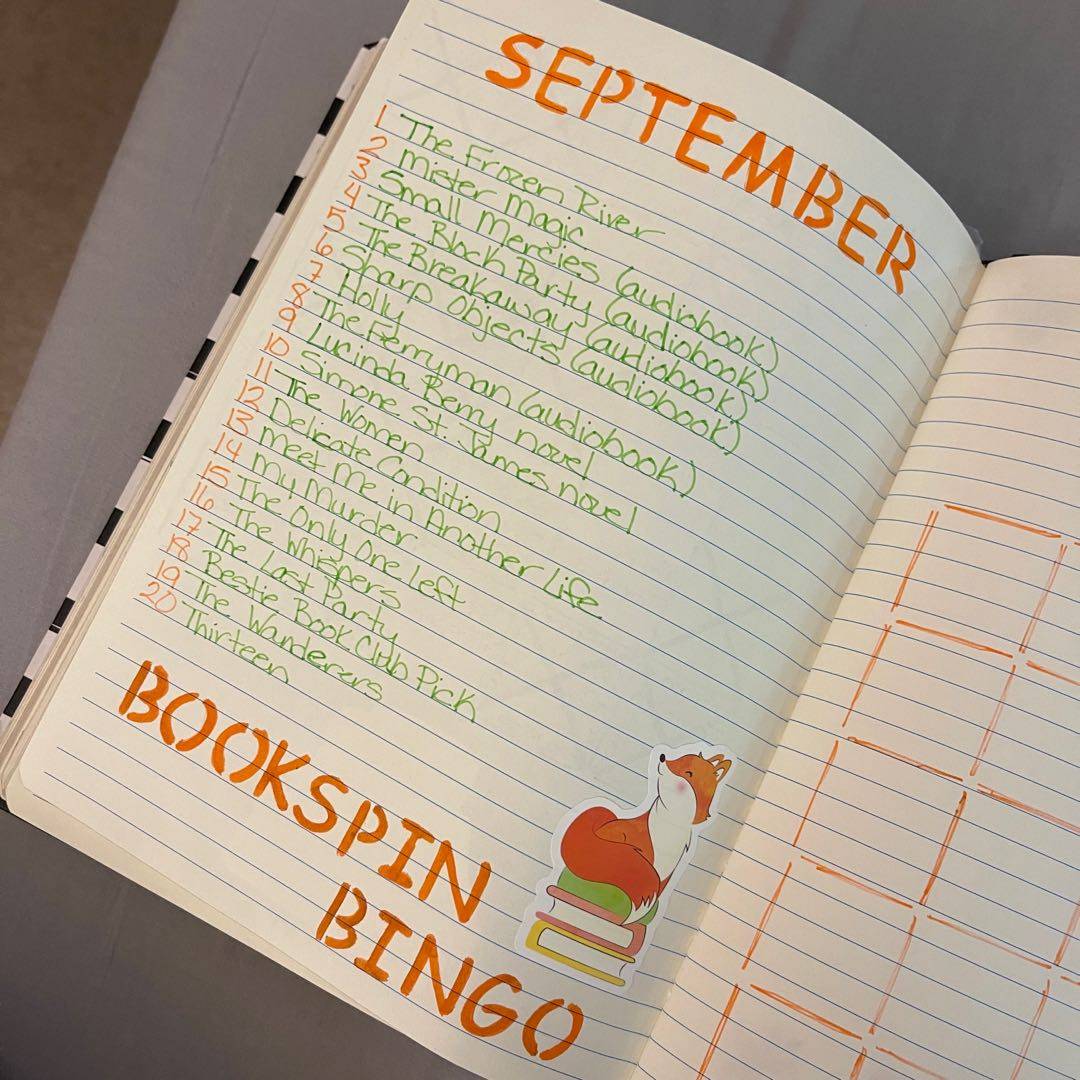 SEPTEMBER
1 The Frozen River
2 Mister Magic
3 Small Mercies (audiobook)
4 The Block Party (audiobook)
5 The Breakaway (audiobook)
6 Sharp Objects (audiobook)
7 Holly
8 The Ferryman (audiobook)
9 Lucinda Berry novel
10 Simone St. James novel
11 The Women
12 Delicate Condition
13 Meet Me in Another Life
14 My Murder
15 The Only One Left
16 The Whispers
17 The Last Party
18 Bestie Book Club Pick
19 The Wanderers
20 Thirteen
BOOKSPIN
BINGO